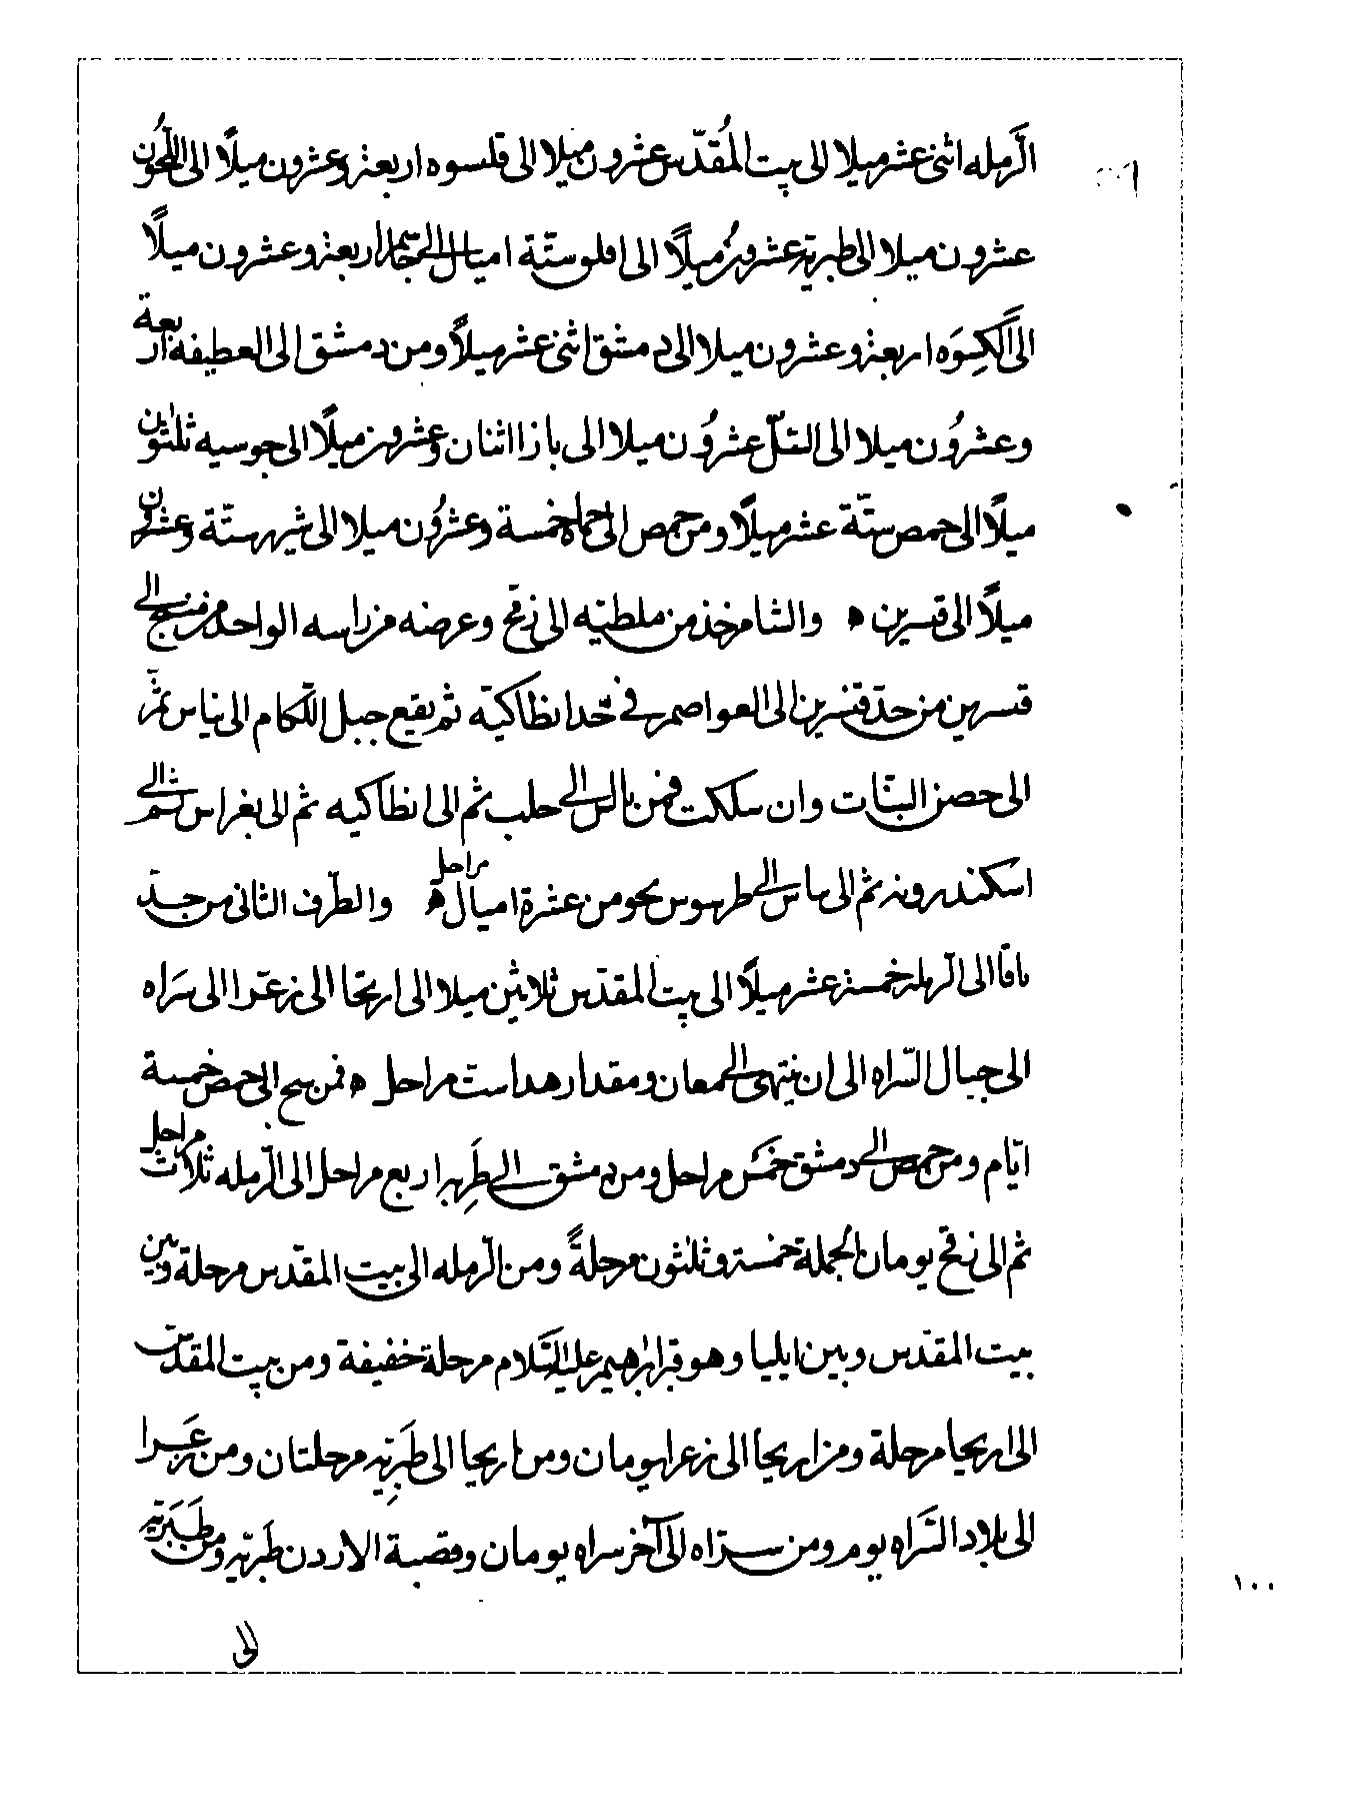 الرَّمله اثنى عشر ميلا الى بيت المُقدّس عشرون ميلا الى قلسوه اربعة وعشرون ميلًا الى اللّجُون
عشرون ميلا الى طبرية عشرون ميلًا الى افلوستّة اميال الى جاسم اربعة وعشرون ميلًا
الى الكِسوَه اربعة وعشرون ميلا الى دمشق اثنى عشر ميلًا ومن دمشق الى العطيفه اربعة
وعشرُون ميلا الى النّبك عشرُون ميلا الى بازا اثنان وعشرون ميلًا الى جوسيه ثلثون
ميلًا الى حمص ستّة عشر ميلًا ومن حمص الى حماه خمسة وعشرُون ميلا الى شيزر ستّة وعشرون
ميلًا الى قنسرين ه والشام خذ من ملطيّه الى رفح وعرضه من راسه الواحد من منبج الى
قنسرين من حدّ قنّسرين الى العواصم في حدّ انطاكيّه ثم يقع جبل اللّكام الى بياس ثمّ
الى حصن التينات وان سلكت فمن بالس الى حلب ثم الى انطاكيه ثم الى بغراس ثم الى
اسكندرونه ثم الى بياس الى طرسوس نحو من عشرة اميال مراحل ه والطّرف الثانى من حدّ
يافا الى الرّمله خمسة عشر ميلًا الى بيت المقدّس ثلاثين ميلا الى اريحا الى زغرا الى سَراه
الى جبال السّراه الى ان ينتهى الى معان ومقدار هدا ست مراحل ه فمن منبج الى حمص خمسة
ايّام ومن حمص الى دمشق خمس مراحل ومن دمشق الى طَبرِيه اربع مراحل الى الرّمله ثلاث مراحل
ثم الى رفح يومان الجُملة خمسة وثلثون مرحلةً ومن الرّمله الى بيت المقدّس مرحلة وبين
بيت المقدّس وبين ايليا وهو قبر ابرٰهيم عليه السَّلام مرحلة خفيفة ومن بيت المقدّس
الى اريحا مرحلة ومن اريحا الى زغرا يومان ومن اريحا الى طَبَرِيّه مرحلتان ومن زغَرا
الى بلاد السَّراه يوم ومن سراه الى آخر سراه يومان وقصبة الاردن طَبَريّه ومن طَبَرَيّه
الى
١٠٠